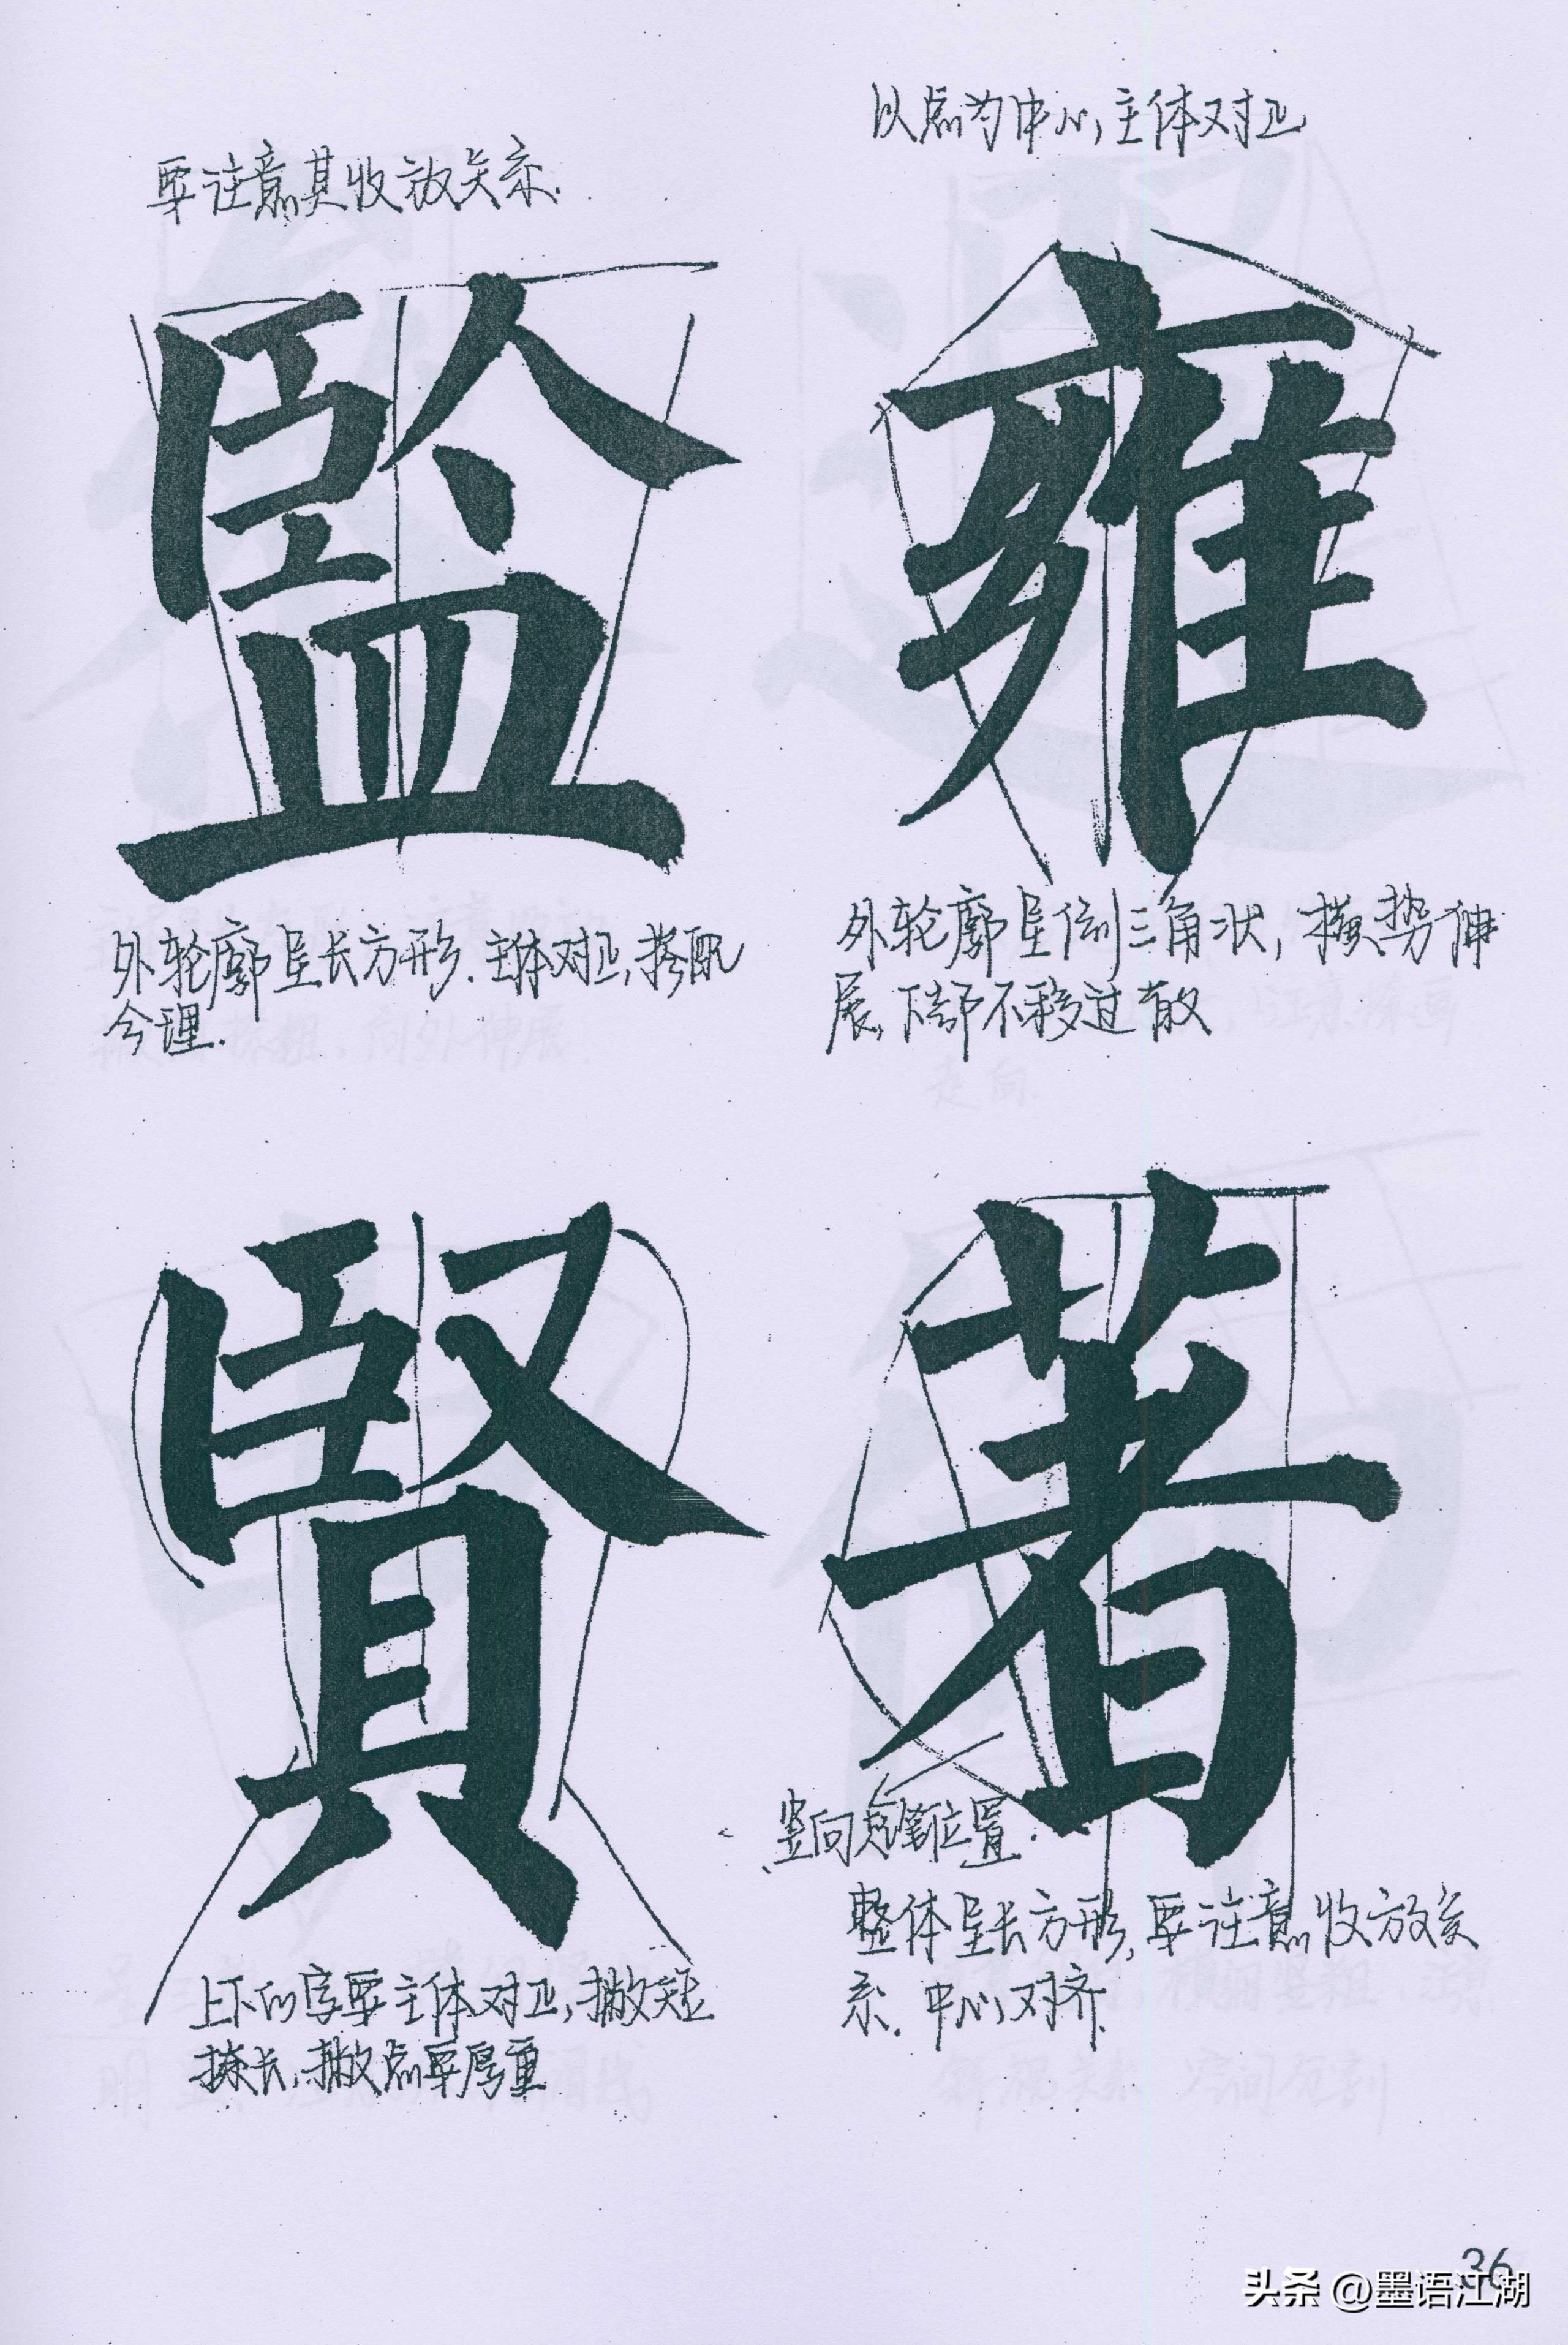 要注意其收放关系.
監
外轮廓呈长方形.主体对正,搭配
合理.
以点为中心,主体对正
雍
外轮廓呈倒三角状,横势伸
展,下部不移过散
賢
上下的字要主体对正,撇短
捺长,撇点要厚重
著
竖向短撇位置.
整体呈长方形,要注意收放关
系.中心对齐.
36
头条 @墨语江湖